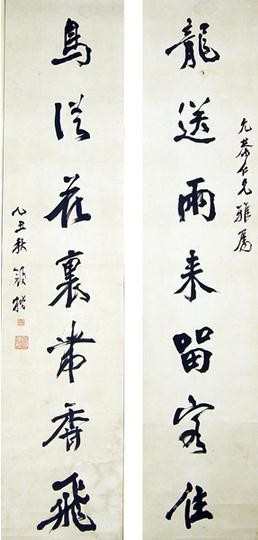 允恭仁兄雅屬
龍送雨来留客住
鳥從花裏帶香飛
乙丑秋